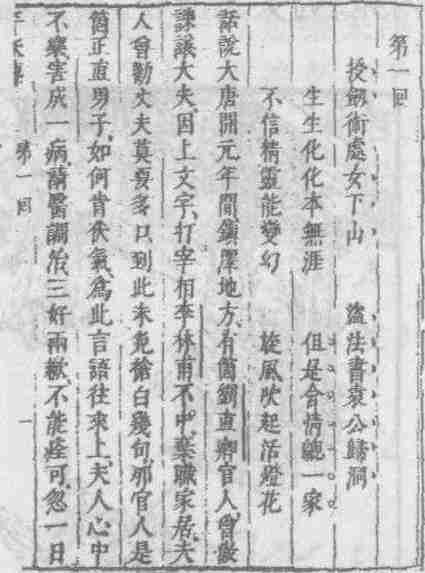 第一回
授劍術處女下山　盜法書袁公歸洞
生生化化本無涯　但是含情總一家
不信精靈能變幻　旋風吹起活燈花
話說大唐開元年間鎮澤地方有箇劉直卿官人曾做
諫議大夫因上文字打宰相李林甫不中棄職家居夫
人曾勸丈夫莫要多口到此未免搶白幾句那官人是
箇正直男子如何肯伏氣爲此言語往來上夫人心中
不樂害成一病請醫調治三好兩歉不能痊可忽一日
第一回
一